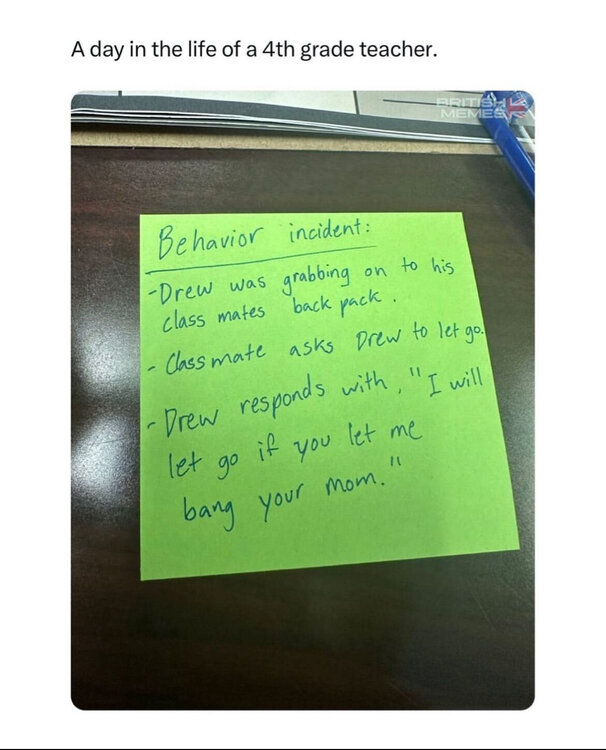 A day in the life of a 4th grade teacher.
BRITISH
MEMES
Behavior incident:
-Drew was grabbing on to his
class mates back pack.
- Classmate asks Drew to let go.
- Drew responds with, "I will
let go if you let me
bang your mom."